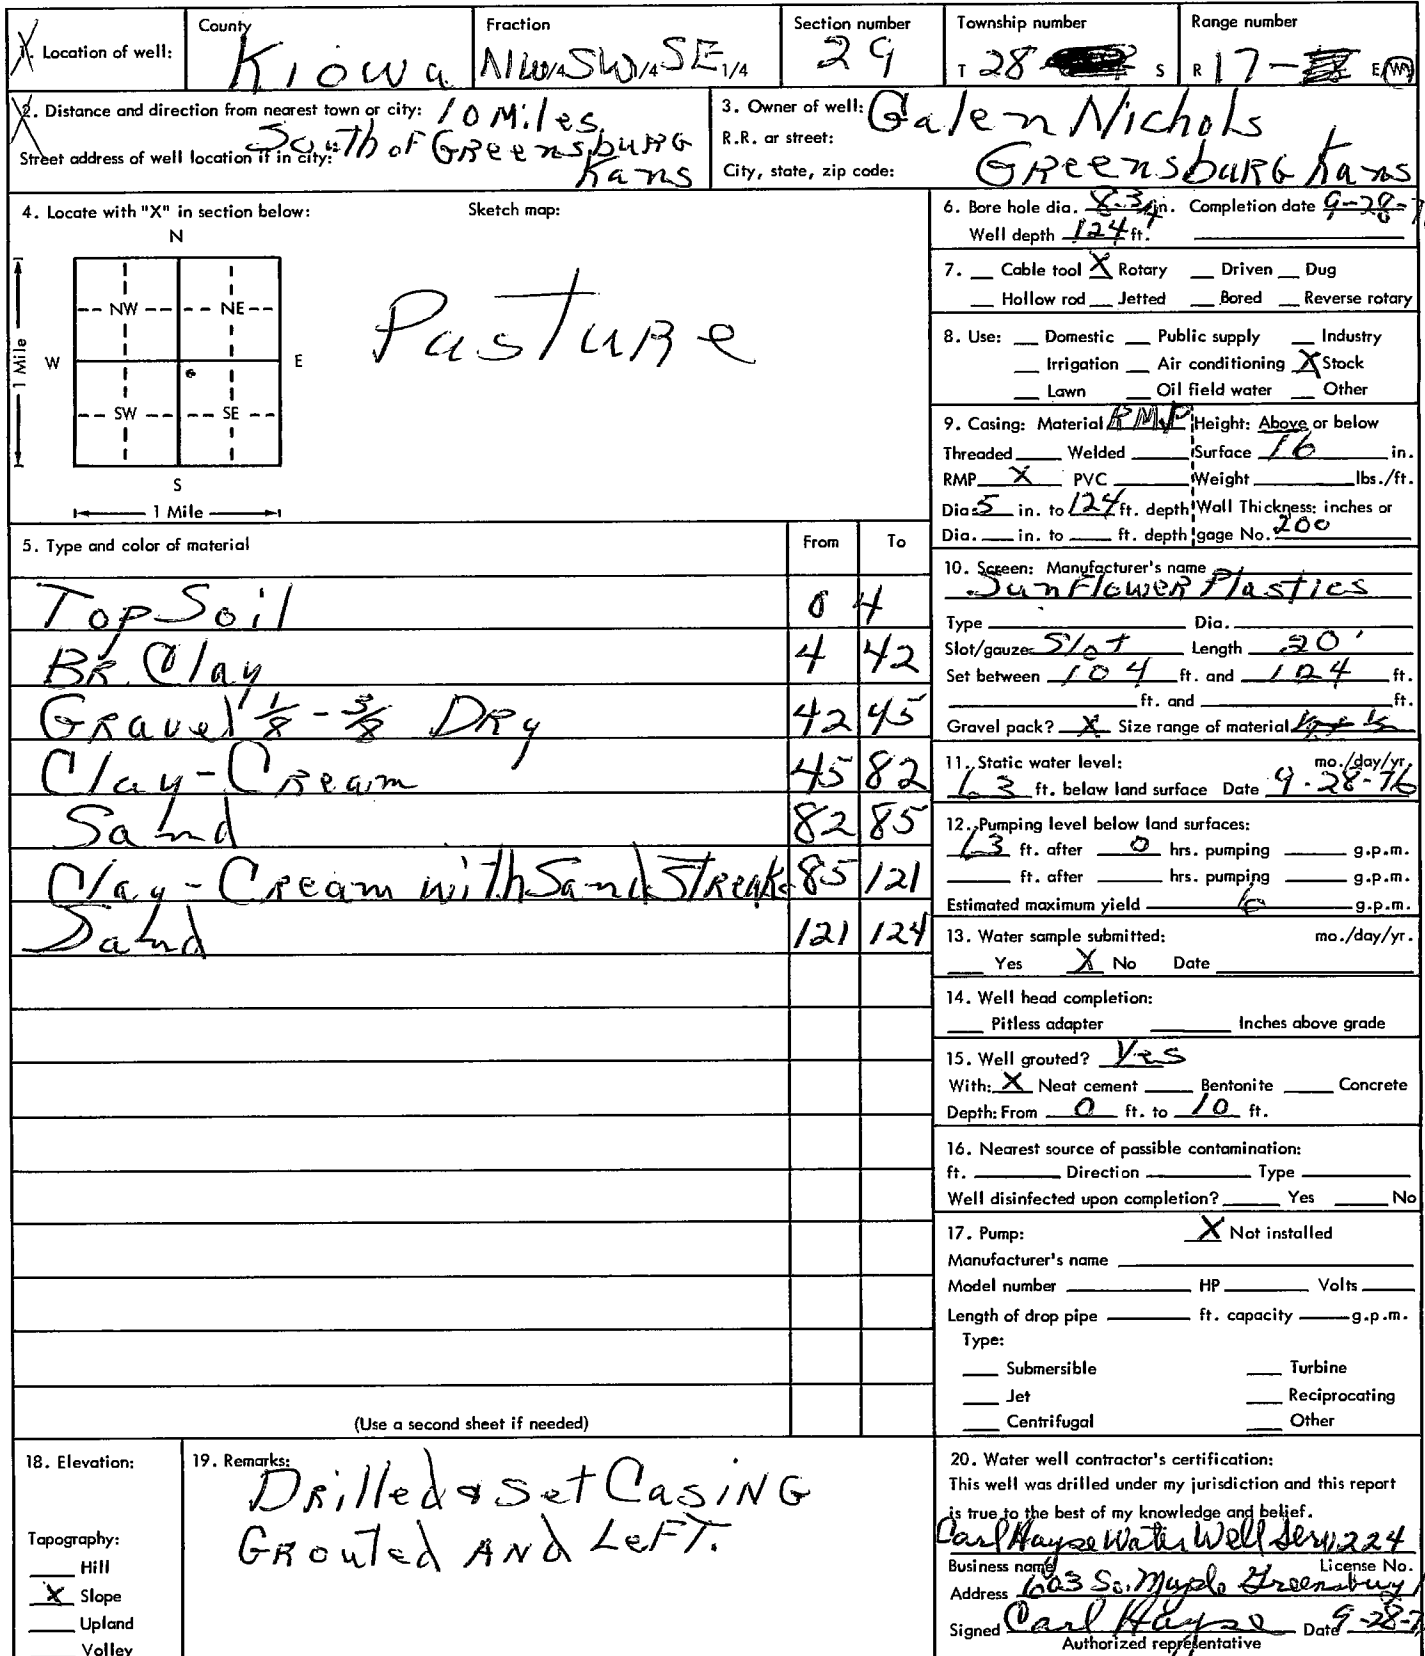 1. Location of well: County Kiowa Fraction NW1/4 SW1/4 SE1/4 Section number 29 Township number T 28 S Range number R 17 - E/W
2. Distance and direction from nearest town or city: 10 Miles
South of Greensburg
Street address of well location if in city: Kans
3. Owner of well: Galen Nichols
R.R. or street:
City, state, zip code: Greensburg Kans
4. Locate with "X" in section below: Sketch map:
N
NW NE
W E
SW SE
S
1 Mile
1 Mile
Pasture
5. Type and color of material From To
Top Soil 0 4
BR. Clay 4 42
Gravel 1/8 - 3/8 Dry 42 45
Clay - Cream 45 82
Sand 82 85
Clay - Cream with Sand Streak 85 121
Sand 121 124
(Use a second sheet if needed)
6. Bore hole dia. 8 3/4 in. Completion date 9-28-7
Well depth 124 ft.
7. Cable tool X Rotary Driven Dug
Hollow rod Jetted Bored Reverse rotary
8. Use: Domestic Public supply Industry
Irrigation Air conditioning X Stock
Lawn Oil field water Other
9. Casing: Material RMP Height: Above or below
Threaded Welded Surface 16 in.
RMP X PVC Weight lbs./ft.
Dia. 5 in. to 124 ft. depth Wall Thickness: inches or
Dia. in. to ft. depth gage No. 200
10. Screen: Manufacturer's name
SunFlower Plastics
Type Dia.
Slot/gauze Slot Length 20'
Set between 104 ft. and 124 ft.
ft. and ft.
Gravel pack? X Size range of material
11. Static water level: mo./day/yr.
63 ft. below land surface Date 9-28-76
12. Pumping level below land surfaces:
63 ft. after 0 hrs. pumping g.p.m.
ft. after hrs. pumping g.p.m.
Estimated maximum yield 6 g.p.m.
13. Water sample submitted: mo./day/yr.
Yes X No Date
14. Well head completion:
Pitless adapter Inches above grade
15. Well grouted? Yes
With: X Neat cement Bentonite Concrete
Depth: From 0 ft. to 10 ft.
16. Nearest source of possible contamination:
ft. Direction Type
Well disinfected upon completion? Yes No
17. Pump: X Not installed
Manufacturer's name
Model number HP Volts
Length of drop pipe ft. capacity g.p.m.
Type:
Submersible Turbine
Jet Reciprocating
Centrifugal Other
18. Elevation:
Tapography:
Hill
X Slope
Upland
Volley
19. Remarks:
Drilled & set Casing
Grouted And Left.
20. Water well contractor's certification:
This well was drilled under my jurisdiction and this report
is true to the best of my knowledge and belief.
Carl Hayse Water Well Serv 224
Business name License No.
Address 603 So. Maple Greensburg
Signed Carl Hayse Date 9-28-7
Authorized representative